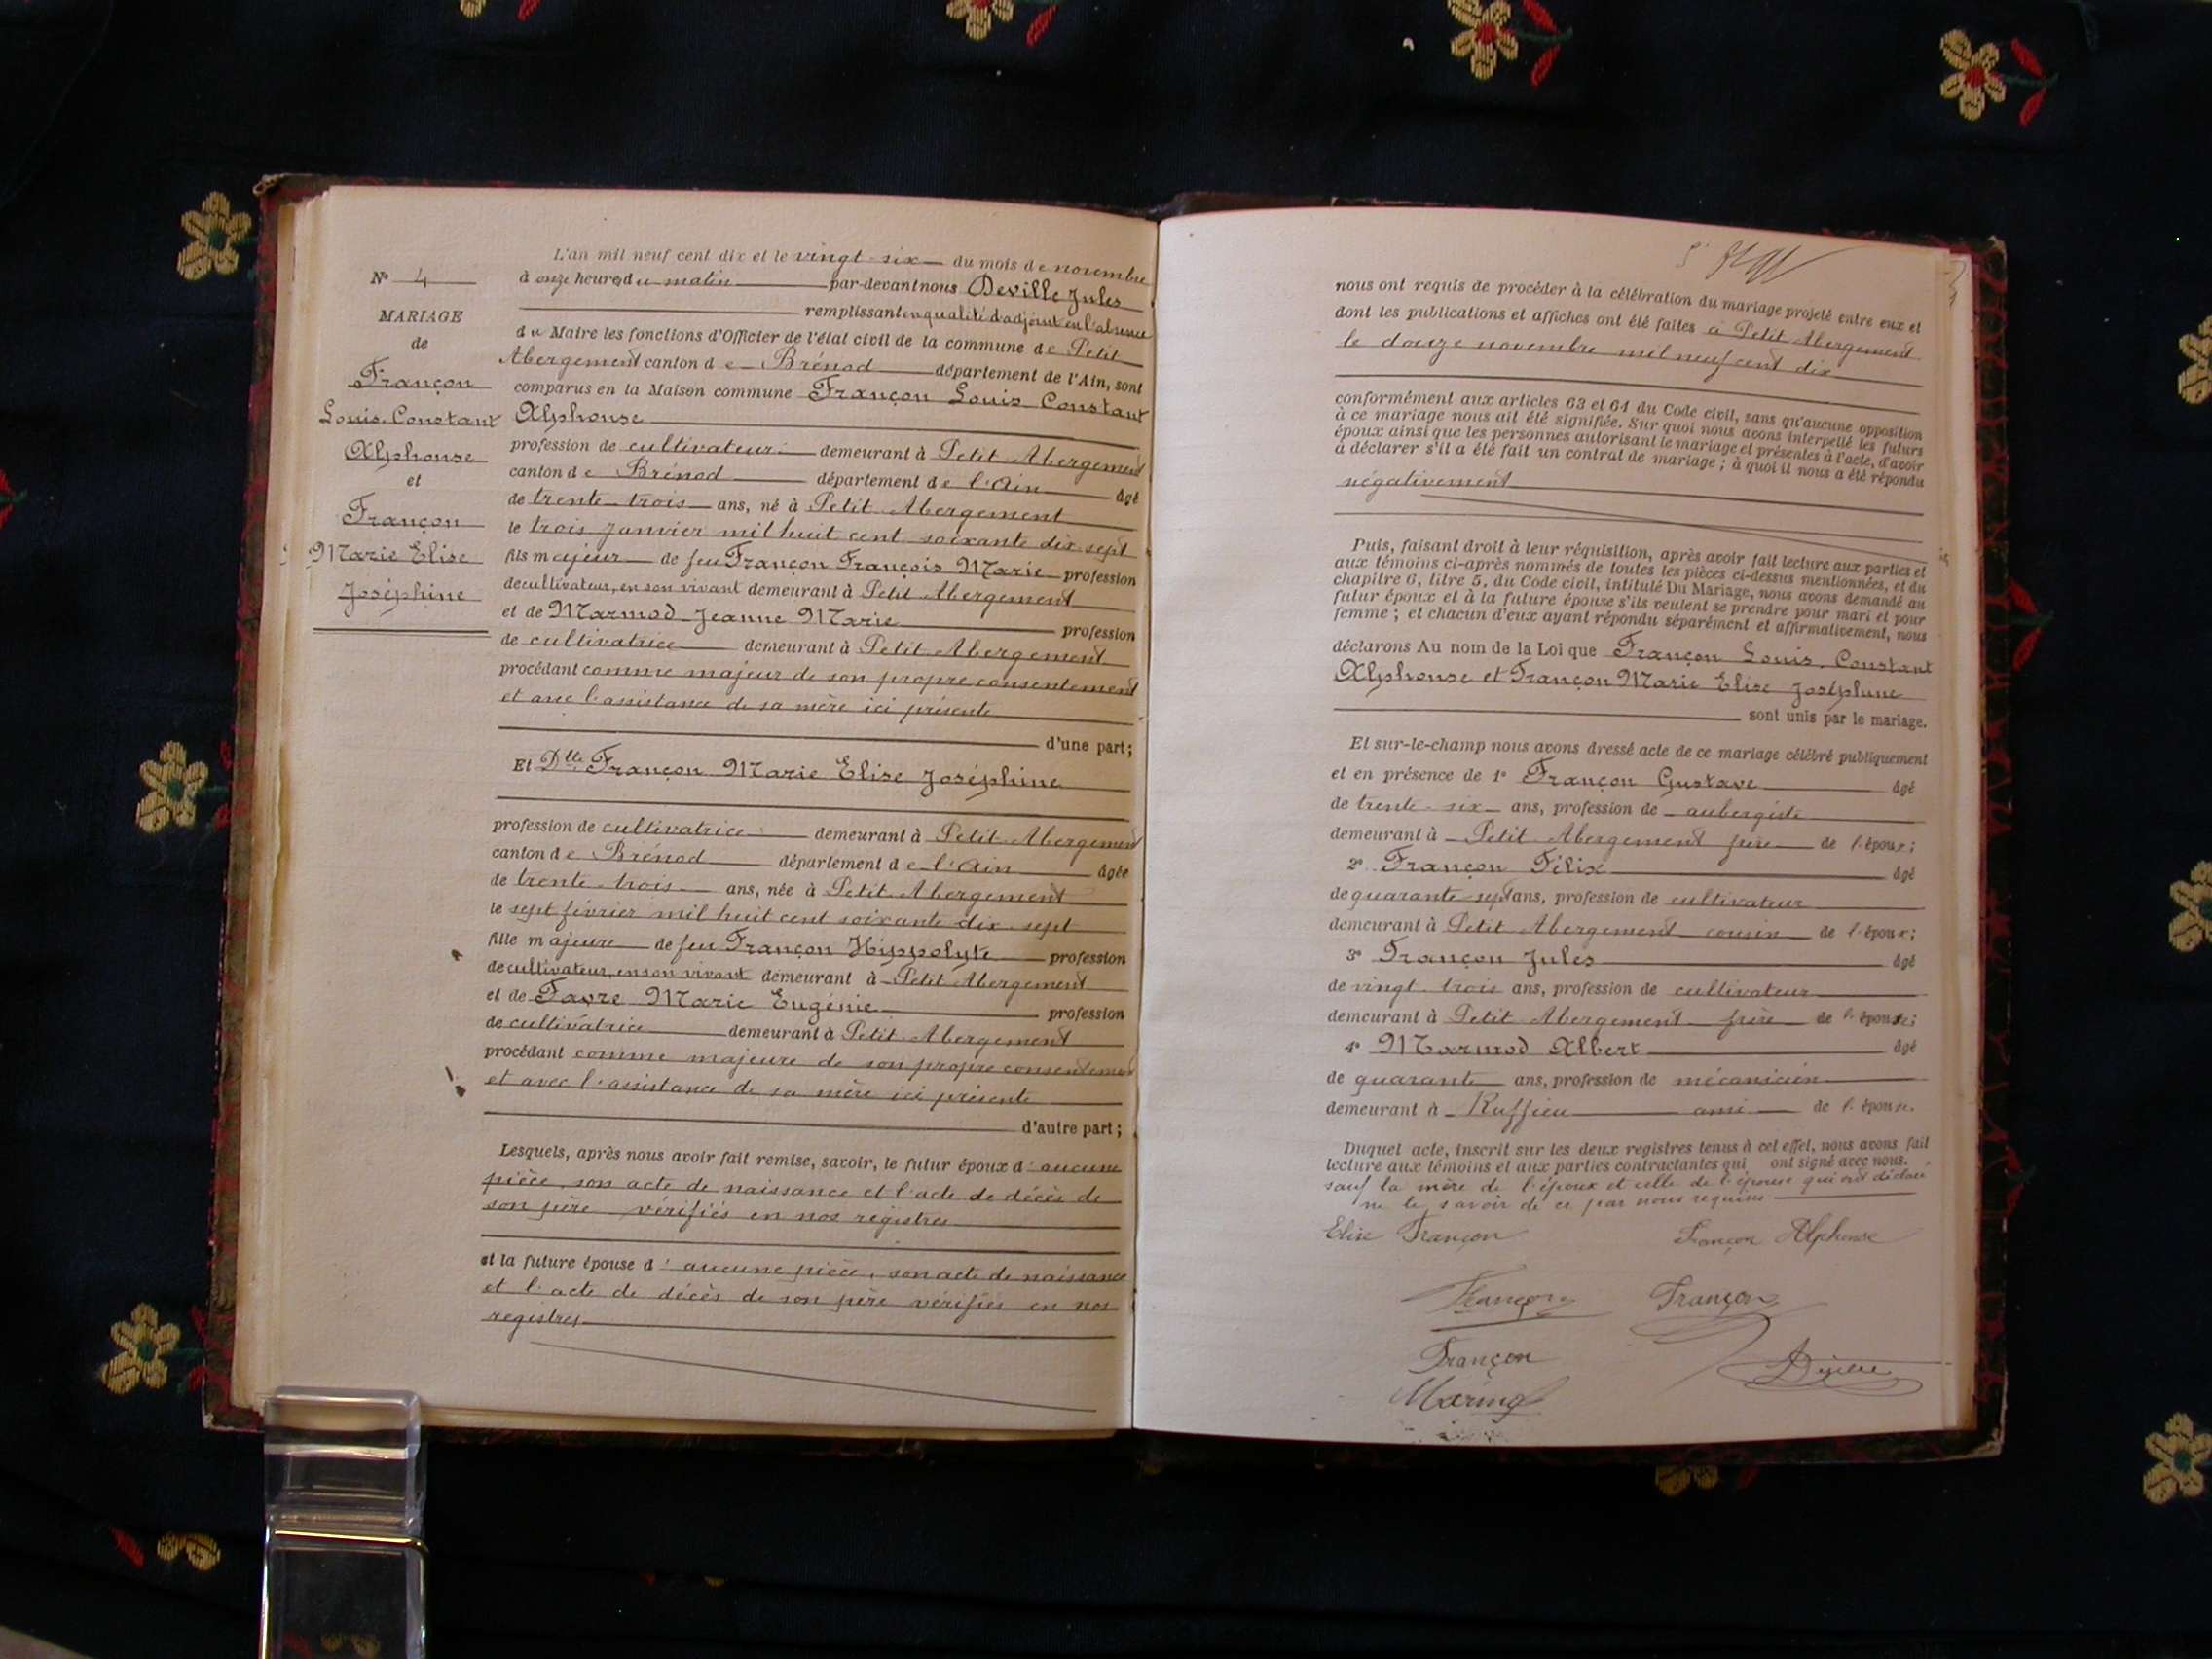 N° 4
MARIAGE
de
Françon
Louis Constant
Alphonse
et
Françon
Marie Elise
Joséphine
L'an mil neuf cent dix et le vingt-six du mois de novembre
à onze heures du matin par-devant nous Deville Jules
remplissant en qualité d'adjoint en l'absence
du Maire les fonctions d'Officier de l'état civil de la commune de Petit
Abergement canton de Brénod département de l'Ain, sont
comparus en la Maison commune Françon Louis Constant
Alphonse
profession de cultivateur demeurant à Petit Abergement
canton de Brénod département de l'Ain âgé
de trente-trois ans, né à Petit Abergement
le trois janvier mil huit cent soixante dix-sept
fils majeur de feu Françon François Marie profession
de cultivateur, en son vivant demeurant à Petit Abergement
et de Marmod Jeanne Marie profession
de cultivatrice demeurant à Petit Abergement
procédant comme majeur de son propre consentement
et avec l'assistance de sa mère ici présente
d'une part;
Et Dlle Françon Marie Elise Joséphine
profession de cultivatrice demeurant à Petit Abergement
canton de Brénod département de l'Ain âgée
de trente-trois ans, née à Petit Abergement
le sept février mil huit cent soixante dix-sept
fille majeure de feu Françon Hippolyte profession
de cultivateur, en son vivant demeurant à Petit Abergement
et de Favre Marie Eugénie profession
de cultivatrice demeurant à Petit Abergement
procédant comme majeure de son propre consentement
et avec l'assistance de sa mère ici présente
d'autre part;
Lesquels, après nous avoir fait remise, savoir, le futur époux d'aucune
pièce, son acte de naissance et l'acte de décès de
son père vérifiés en nos registres
et la future épouse d'aucune pièce, son acte de naissance
et l'acte de décès de son père vérifiés en nos
registres
nous ont requis de procéder à la célébration du mariage projeté entre eux et
dont les publications et affiches ont été faites à Petit Abergement
le douze novembre mil neuf cent dix
conformément aux articles 63 et 64 du Code civil, sans qu'aucune opposition
à ce mariage nous ait été signifiée. Sur quoi nous avons interpellé les futurs
époux ainsi que les personnes autorisant le mariage et présentes à l'acte, d'avoir
à déclarer s'il a été fait un contrat de mariage; à quoi il nous a été répondu
négativement
Puis, faisant droit à leur réquisition, après avoir fait lecture aux parties et
aux témoins ci-après nommés de toutes les pièces ci-dessus mentionnées, et du
chapitre 6, titre 5, du Code civil, intitulé Du Mariage, nous avons demandé au
futur époux et à la future épouse s'ils veulent se prendre pour mari et pour
femme; et chacun d'eux ayant répondu séparément et affirmativement, nous
déclarons Au nom de la Loi que Françon Louis Constant
Alphonse et Françon Marie Elise Joséphine
sont unis par le mariage.
Et sur-le-champ nous avons dressé acte de ce mariage célébré publiquement
et en présence de 1° Françon Gustave âgé
de trente-six ans, profession de aubergiste
demeurant à Petit Abergement frère de l'époux;
2° Françon Félix âgé
de quarante-sept ans, profession de cultivateur
demeurant à Petit Abergement cousin de l'époux;
3° Françon Jules âgé
de vingt-trois ans, profession de cultivateur
demeurant à Petit Abergement frère de l'épouse;
4° Marmod Albert âgé
de quarante ans, profession de mécanicien
demeurant à Ruffieu ami de l'épouse.
Duquel acte, inscrit sur les deux registres tenus à cet effet, nous avons fait
lecture aux témoins et aux parties contractantes qui ont signé avec nous.
sauf la mère de l'époux et celle de l'épouse qui ont déclaré
ne le savoir de ce par nous requises
Elise Françon Françon Alphonse
Françon Françon
Françon
Deville
Marmod